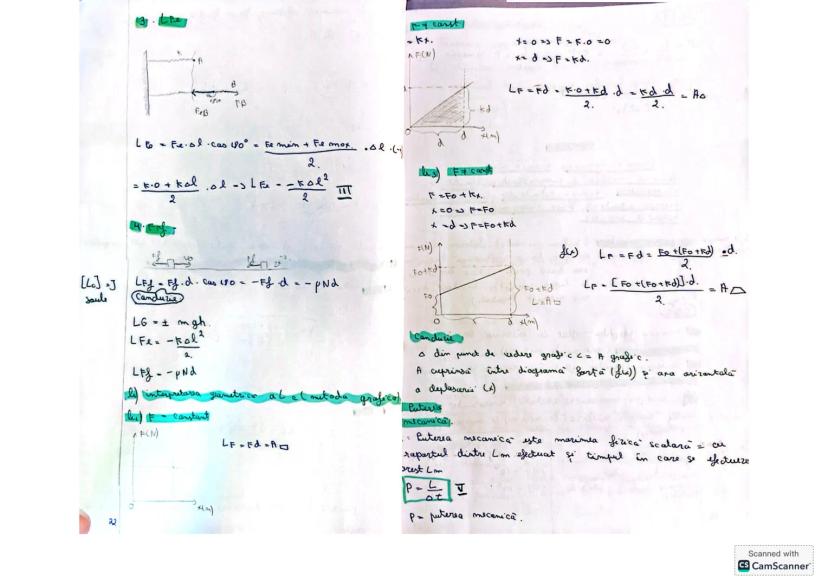 3. LFe
A
B
LFe = Fe · Δl · cos 180° = Fe min + Fe max / 2 · Δl · (-1)
= k·0 + kΔl / 2 · Δl → LFe = -kΔl² / 2 III
4. LFf
[L] = J
Joule
LFf = Ff · d · cos 180 = -Ff · d = -μNd
Concluzie
LG = ± mgh.
LFe = -kΔl² / 2
LFf = -μNd
b) interpretarea geometrică a L (metoda grafică)
b1) F = constant
F(N)
LF = Fd = A▭
x(m)
22
F ≠ const
= kx.
x=0 => F = k·0 = 0
x=d => F = kd.
F(N)
LF = Fd = k·0+kd / 2 · d = kd·d / 2 = A△
kd
0 d d x(m)
F ≠ const
F = Fo + kx.
x=0 => F=Fo
x=d => F=Fo+kd
F(N)
Fo+kd
Fo
Fo+kd
0 d x(m)
f(x) LF = Fd = Fo+(Fo+kd) / 2 · d.
LF = [Fo+(Fo+kd)]·d / 2 = A
Concluzie
din punct de vedere grafic L = A grafic.
A cuprinsă între diagramă forță (f(x)) și axa orizontală
a deplasării (x)
Puterea
mecanică.
Puterea mecanică este mărimea fizică scalară = cu
raportul dintre Lm efectuat și timpul în care se efectueze
acest Lm
P = L / Δt V
P = puterea mecanică.
Scanned with
CS CamScanner